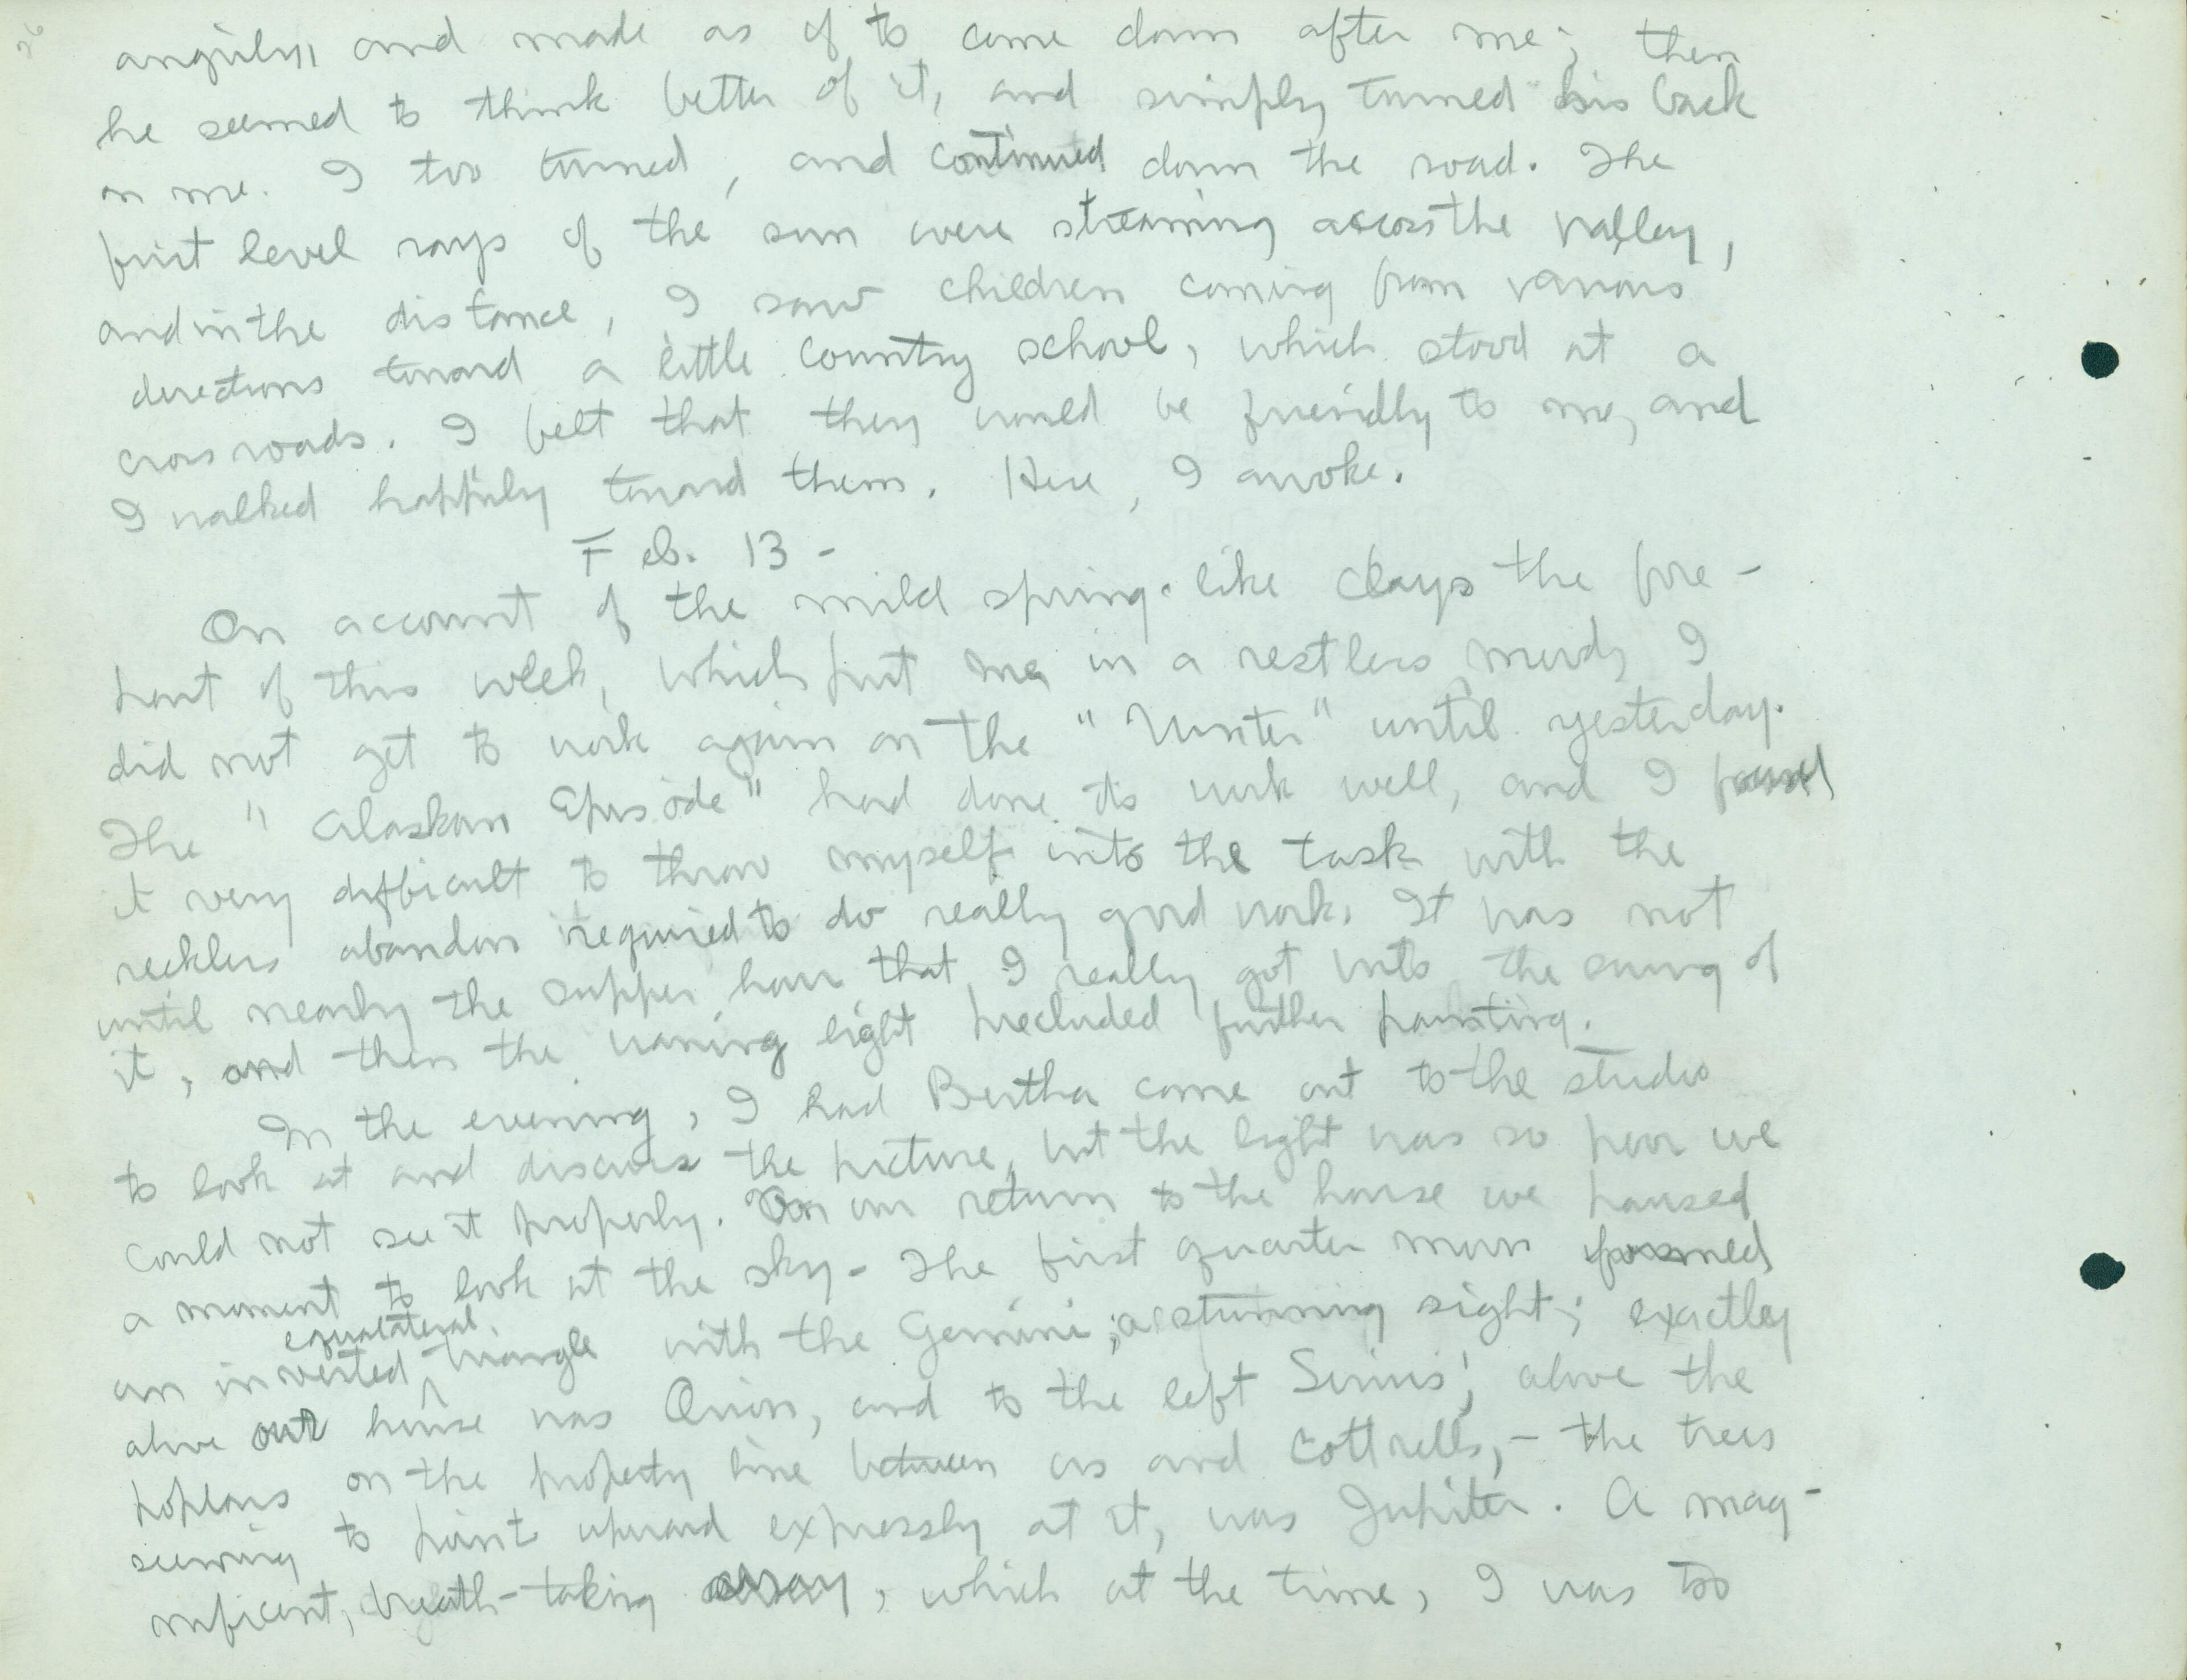 26
angrily, and made as if to come down after me; then
he seemed to think better of it, and simply turned his back
on me. I too turned, and continued down the road. The
first level rays of the sun were streaming across the valley,
and in the distance, I saw children coming from various
directions toward a little country school, which stood at a
cross roads. I felt that they would be friendly to me, and
I walked happily toward them. Here, I awoke.
Feb. 13 -
On account of the mild spring-like days the fore-
part of this week, which put me in a restless mood, I
did not get to work again on the "Winter" until yesterday.
The "Alaskan Episode" had done its work well, and I found
it very difficult to throw myself into the task with the
reckless abandon required to do really good work. It was not
until nearly the supper hour that I really got into the swing of
it, and then the waning light precluded further painting.
In the evening, I had Bertha come out to the studio
to look at and discuss the picture, but the light was so poor we
could not see it properly. On our return to the house we paused
a moment to look at the sky - The first quarter moon formed
an inverted equalateral triangle with the Gemini; a stunning sight; exactly
above our house was Orion, and to the left Sirius; above the
poplars on the property line between us and Cottrells, - the trees
seeming to point upward expressly at it, was Jupiter. A mag-
nificent, breath-taking array, which at the time, I was too